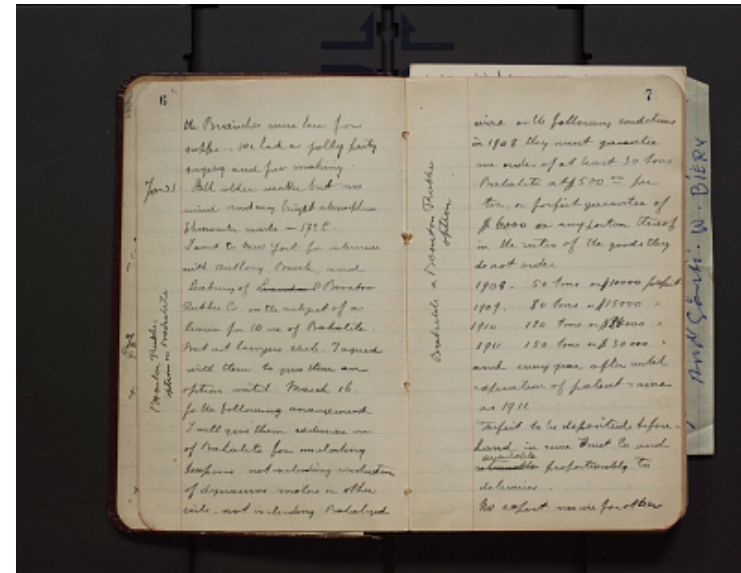 6
the Brownlees were here for
supper. We had a jolly party
singing and fun making
Jan 31 Still colder weather but no
wind and very bright atmosphere
Thermometer marks - 17° C.
I went to New York for interview
with Anthony Brock, and
of Boonton
Rubber Co. on the subject of a
license for the use of Bakelite.
Met at lawyers club. I agreed
with them to give them an
option until March 16.
for the following arrangement
I will give them exclusive use
of Bakelite for molding
purposes not including insulation
of dynamos motors or other
coils. not including Bakelized
Boonton Rubber
option on Bakelite
7
wire on the following conditions
in 1908 they must guarantee
me orders of at least 30 tons
Bakelite at $500 00 per
ton or forfeit guarantee of
$6000 or any portion thereof
in the ratio of the goods they
do not order
1908. 50 tons or $10000 forfeit
1909. 80 tons or $15000 "
1910 120 tons or "
1911 150 tons or $30000 "
and every year after until
expiration of patent same
as 1911
Forfeit to be deposited before-
hand in some Trust Co and
available
proportionably to
deliveries.
No export nor use for other
Bakelite & Boonton Rubber
option
W. BIERY